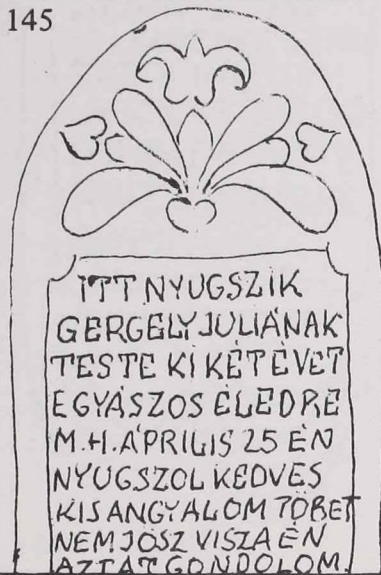 145
ITT NYUGSZIK
GERGELY JULIÁNAK
TESTE KI KÉT ÉVET
EGYÁSZOS ÉLEDRE
M.H. ÁPRILIS 25 ÉN
NYUGSZOL KEDVES
KIS ANGYALOM TÖBET
NEM JÖSZ VISZA ÉN
AZTAT GONDOLOM.